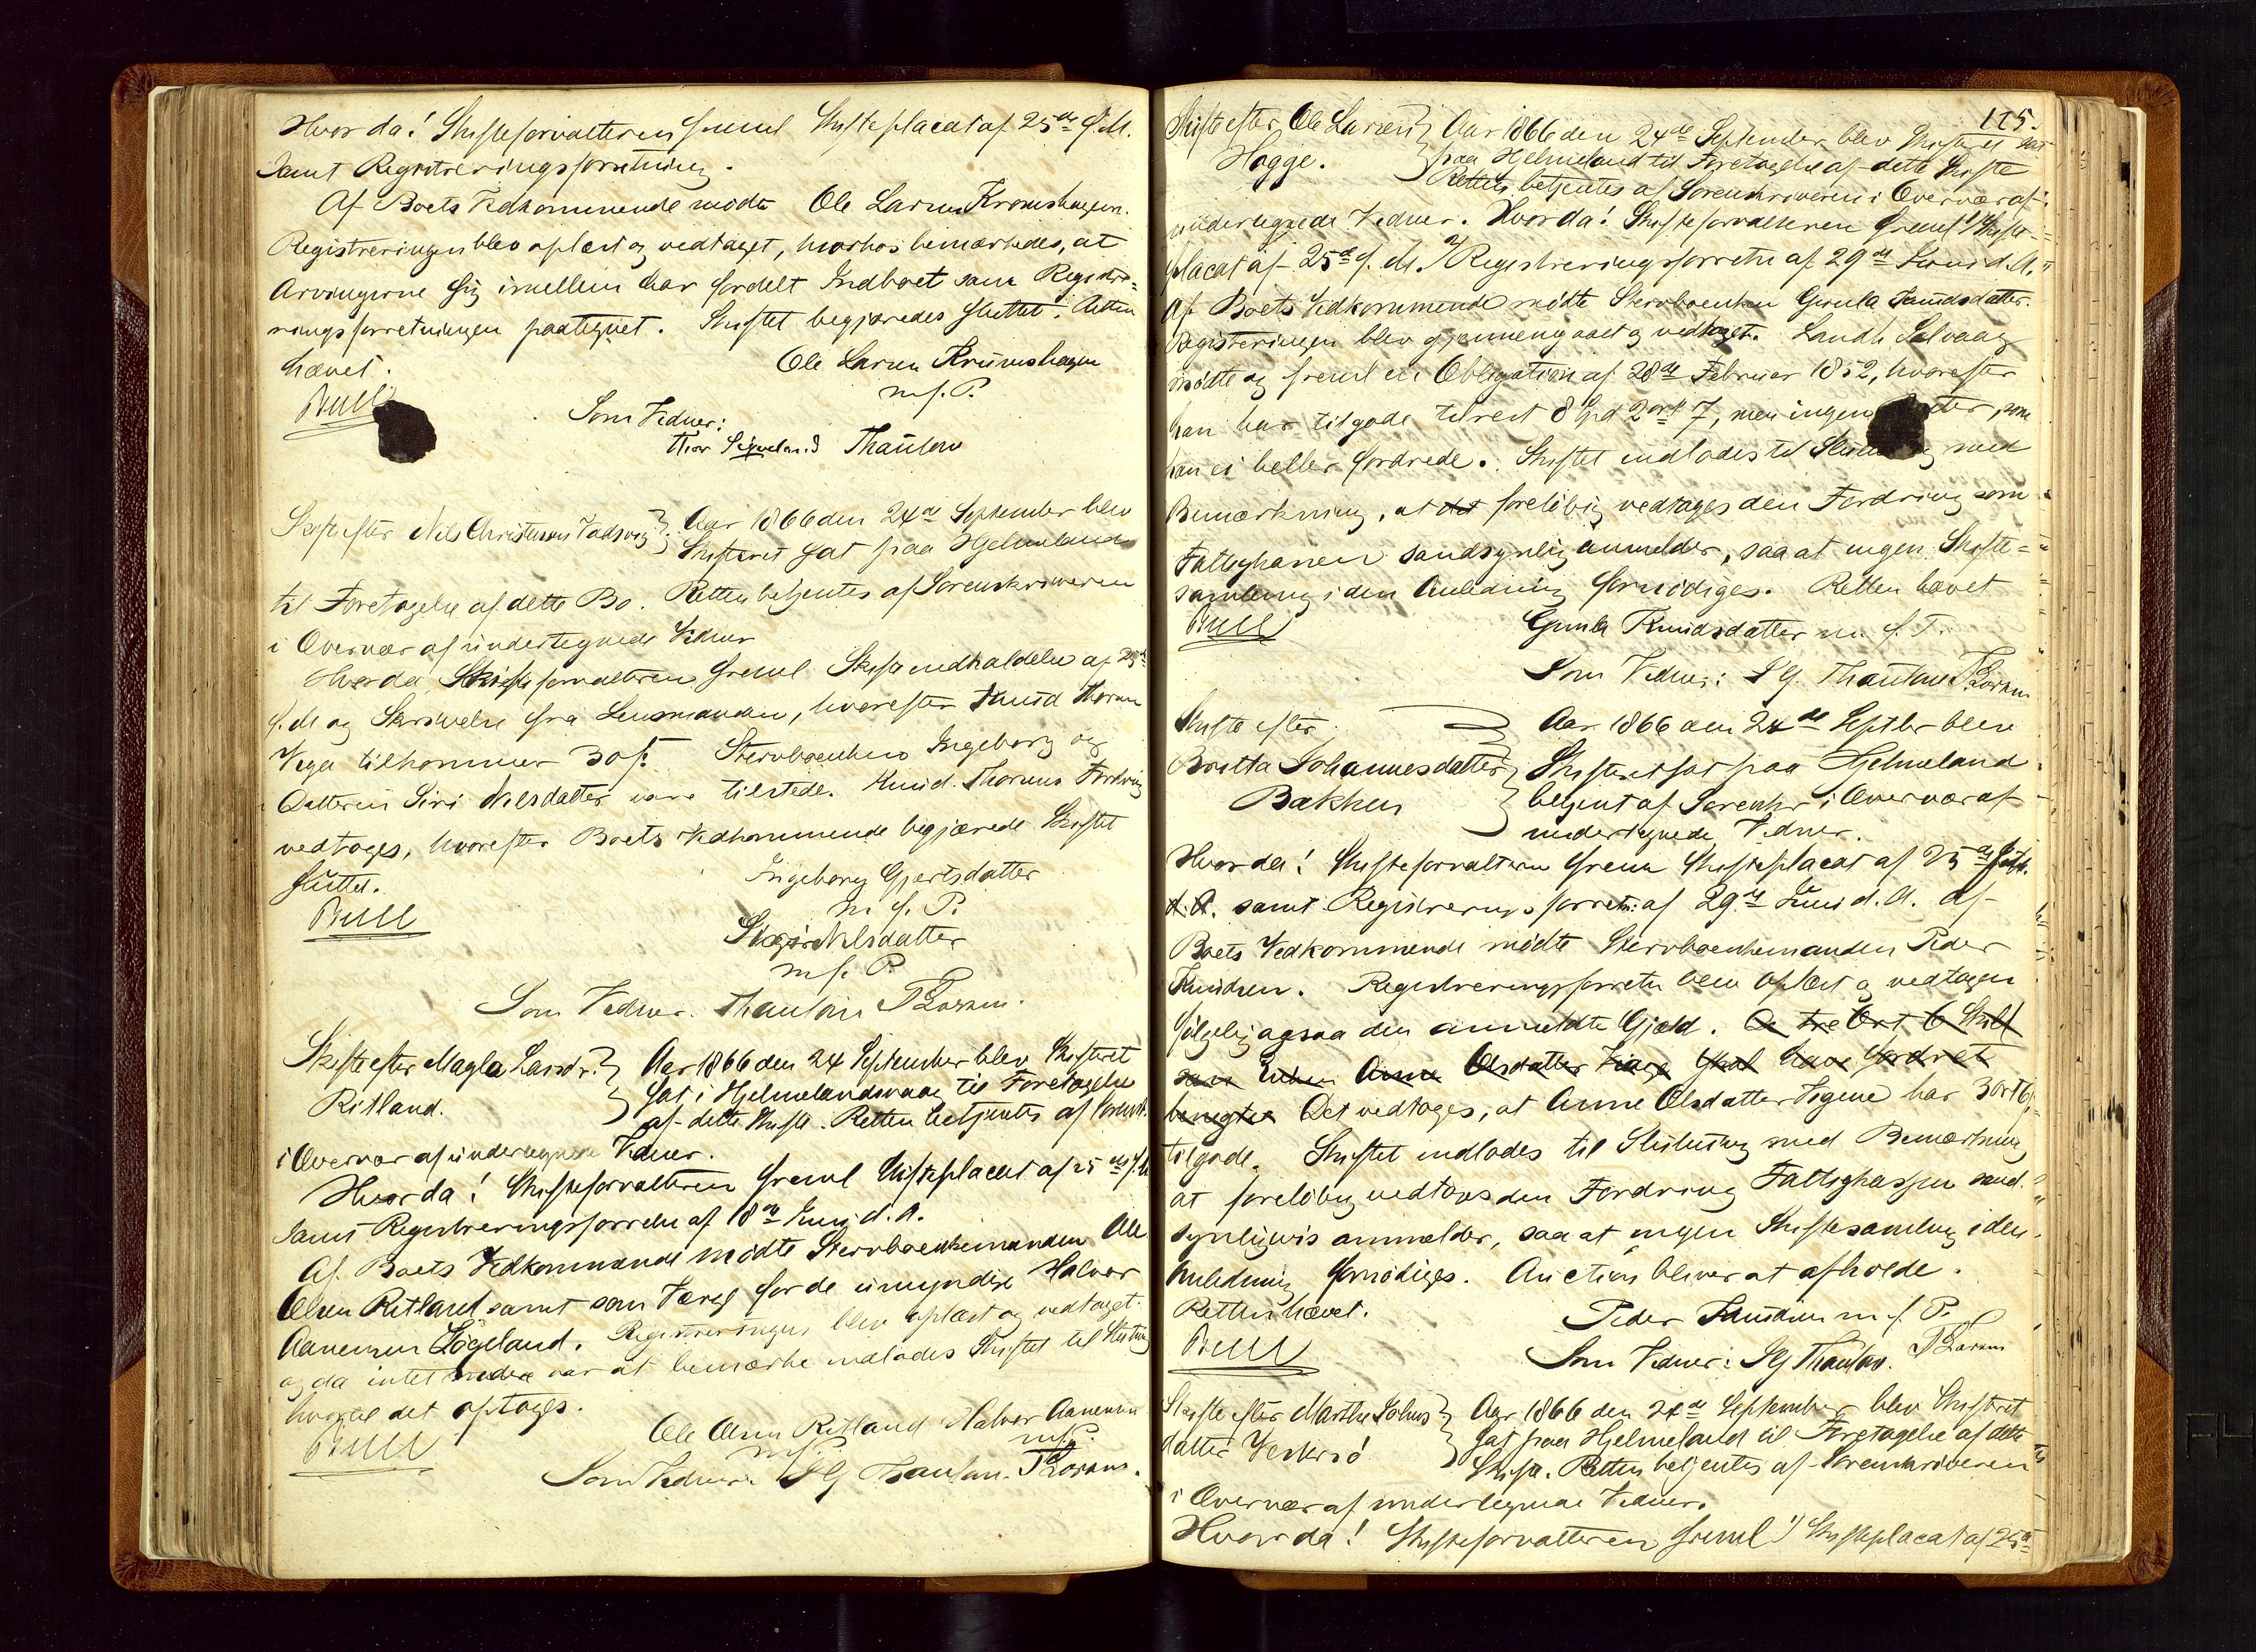 Hvorda! Skifteforvalteren freml Skifteplacat af 25de f. M.
samt Registreringsforretning.
Af Boets Vedkommende mødte Ole Larsen
Registreringen blev oplæst og vedtaget, hvorhos bemærkedes, at
Arvingerne sig imellem har fordelt Indboet som Registre=
ringsforretningen paategnet. Skiftet begjæredes sluttet. Retten
hævet.
Ole Larsen
Bull
m. f. P.
Som Vidner:
Thor Thaulow
Skifte efter Nils Christensen Vadsvig } Aar 1866 den 24de September blev
Skifteret sat paa Hjelmeland
til Foretagelse af dette Bo. Retten betjentes af Sorenskriveren
i Overvær af undertegnede Vidner
Hvorda Skifteforvalteren freml Skifteindkaldelse af 25de
f. M og Skrivelse fra Lensmanden, hvorefter Knud Thorsen
tilkommer 30 s. Stervboenken Ingeborg og
Datteren Siri Nilsdatter var tilstede. Knud Thorsens Fordring
vedtoges, hvorefter Boets Vedkommende begjærede Skiftet
sluttet.
Ingeborg Gjertsdatter
Bull
m. f. P.
Siri Nilsdatter
m. f. P.
Som Vidner. Thaulow
Skifte efter Magla Larsdr. } Aar 1866 den 24 September blev Skifteret
Ritland. } sat i Hjelmelandsvaag til Foretagelse
af dette Skifte. Retten betjentes af Sorenskr.
i Overvær af undertegnede Vidner.
Hvorda! Skifteforvalteren freml Skifteplacat af 25de f. M
samt Registreringsforretn af 18de Juni d. A.
Af Boets Vedkommende mødte Stervboenkemanden Ole
Olsen Ritland samt som Værge for de umyndige Halvor
Aanensen. Registreringen blev oplæst og vedtaget.
og da intet videre var at bemærke indlodes Skiftet til Slutning
hvortil det optoges.
Ole Olsen Ritland Halvor Aanensen
Bull
m. f. P. m. f. P.
Som Vidner. Thaulow.
175.
Skifte efter Ole Larsen } Aar 1866 den 24de September blev Skifteret sat
Hagge. } paa Hjelmeland til Foretagelse af dette Skifte
Retten betjentes af Sorenskriveren i Overvær af
undertegnede Vidner. Hvorda! Skifteforvalteren freml 1) Skifte-
placat af 25de f. M. 2) Registreringsforretn af 29de Juni d. A.
Af Boets Vedkommende mødte Stervboenken Gunla Knudsdatter.
Registreringen blev gjennemgaaet og vedtaget. Landh. Salvaag
mødte og freml en Obligation af 28de Februar 1852, hvorefter
han har tilgode tilrest 8 Spd 2 ort 7, men ingen som
han ei heller fordrede. Skiftet indlodes til med
Bemærkning, at det foreløbig vedtages den Fordring som
Fattigkassen sandsynlig anmelder, saa at ingen Skifte=
samling i den Anledning fornødiges. Retten hævet
Bull
Gunla Knudsdatter m. f. P.
Som Vidner: Thaulow
Skifte efter } Aar 1866 den 24de Septbr blev
Britta Johannesdatter } Skifteret sat paa Hjelmeland
Bakken } betjent af Sorenskr i Overvær af
undertegnede Vidner.
Hvorda! Skifteforvalteren freml Skifteplacat af 25de
d. A. samt Registreringsforretn: af 29de Juni d. A. Af
Boets Vedkommende mødte Stervboenkemanden Peder
Knudsen. Registreringsforretn blev oplæst og vedtagen
følgelig ogsaa den anmeldte Gjæld. De tre Ort 6 Skill
som Enken Anne Olsdatter skal have fordret
benegtes Det vedtoges, at Anne Olsdatter har 3 ort 6
tilgode. Skiftet indlodes til Slutning med Bemærkning
at foreløbig vedtoges den Fordring Fattigkassen sand=
synligvis anmelder, saa at ingen Skiftesamling i den
Anledning fornødiges. Auction bliver at afholde.
Retten hævet.
Peder Knudsen m. f. P.
Bull
Som Vidner: Thaulow.
Skifte efter Marthe Johns } Aar 1866 den 24de September blev Skifteret
datter } sat paa Hjelmeland til Foretagelse af dette
Skifte. Retten betjentes af Sorenskriveren
i Overvær af undertegnede Vidner.
Hvorda! Skifteforvalteren freml 1) Skifteplacat af 25de